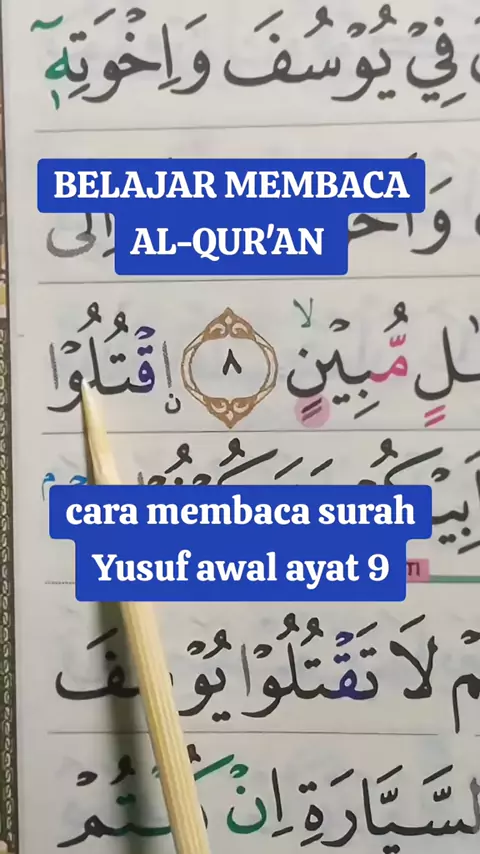 فِيْ يُوْسُفَ وَاِخْوَتِهٖٓ
BELAJAR MEMBACA
AL-QUR'AN
اِلٰى
مُّبِيْنٍ ۙ ٨ اقْتُلُوْا
cara membaca surah
Yusuf awal ayat 9
لَا تَقْتُلُوْا يُوْسُفَ
السَّيَّارَةِ اِنْ كُنْتُمْ